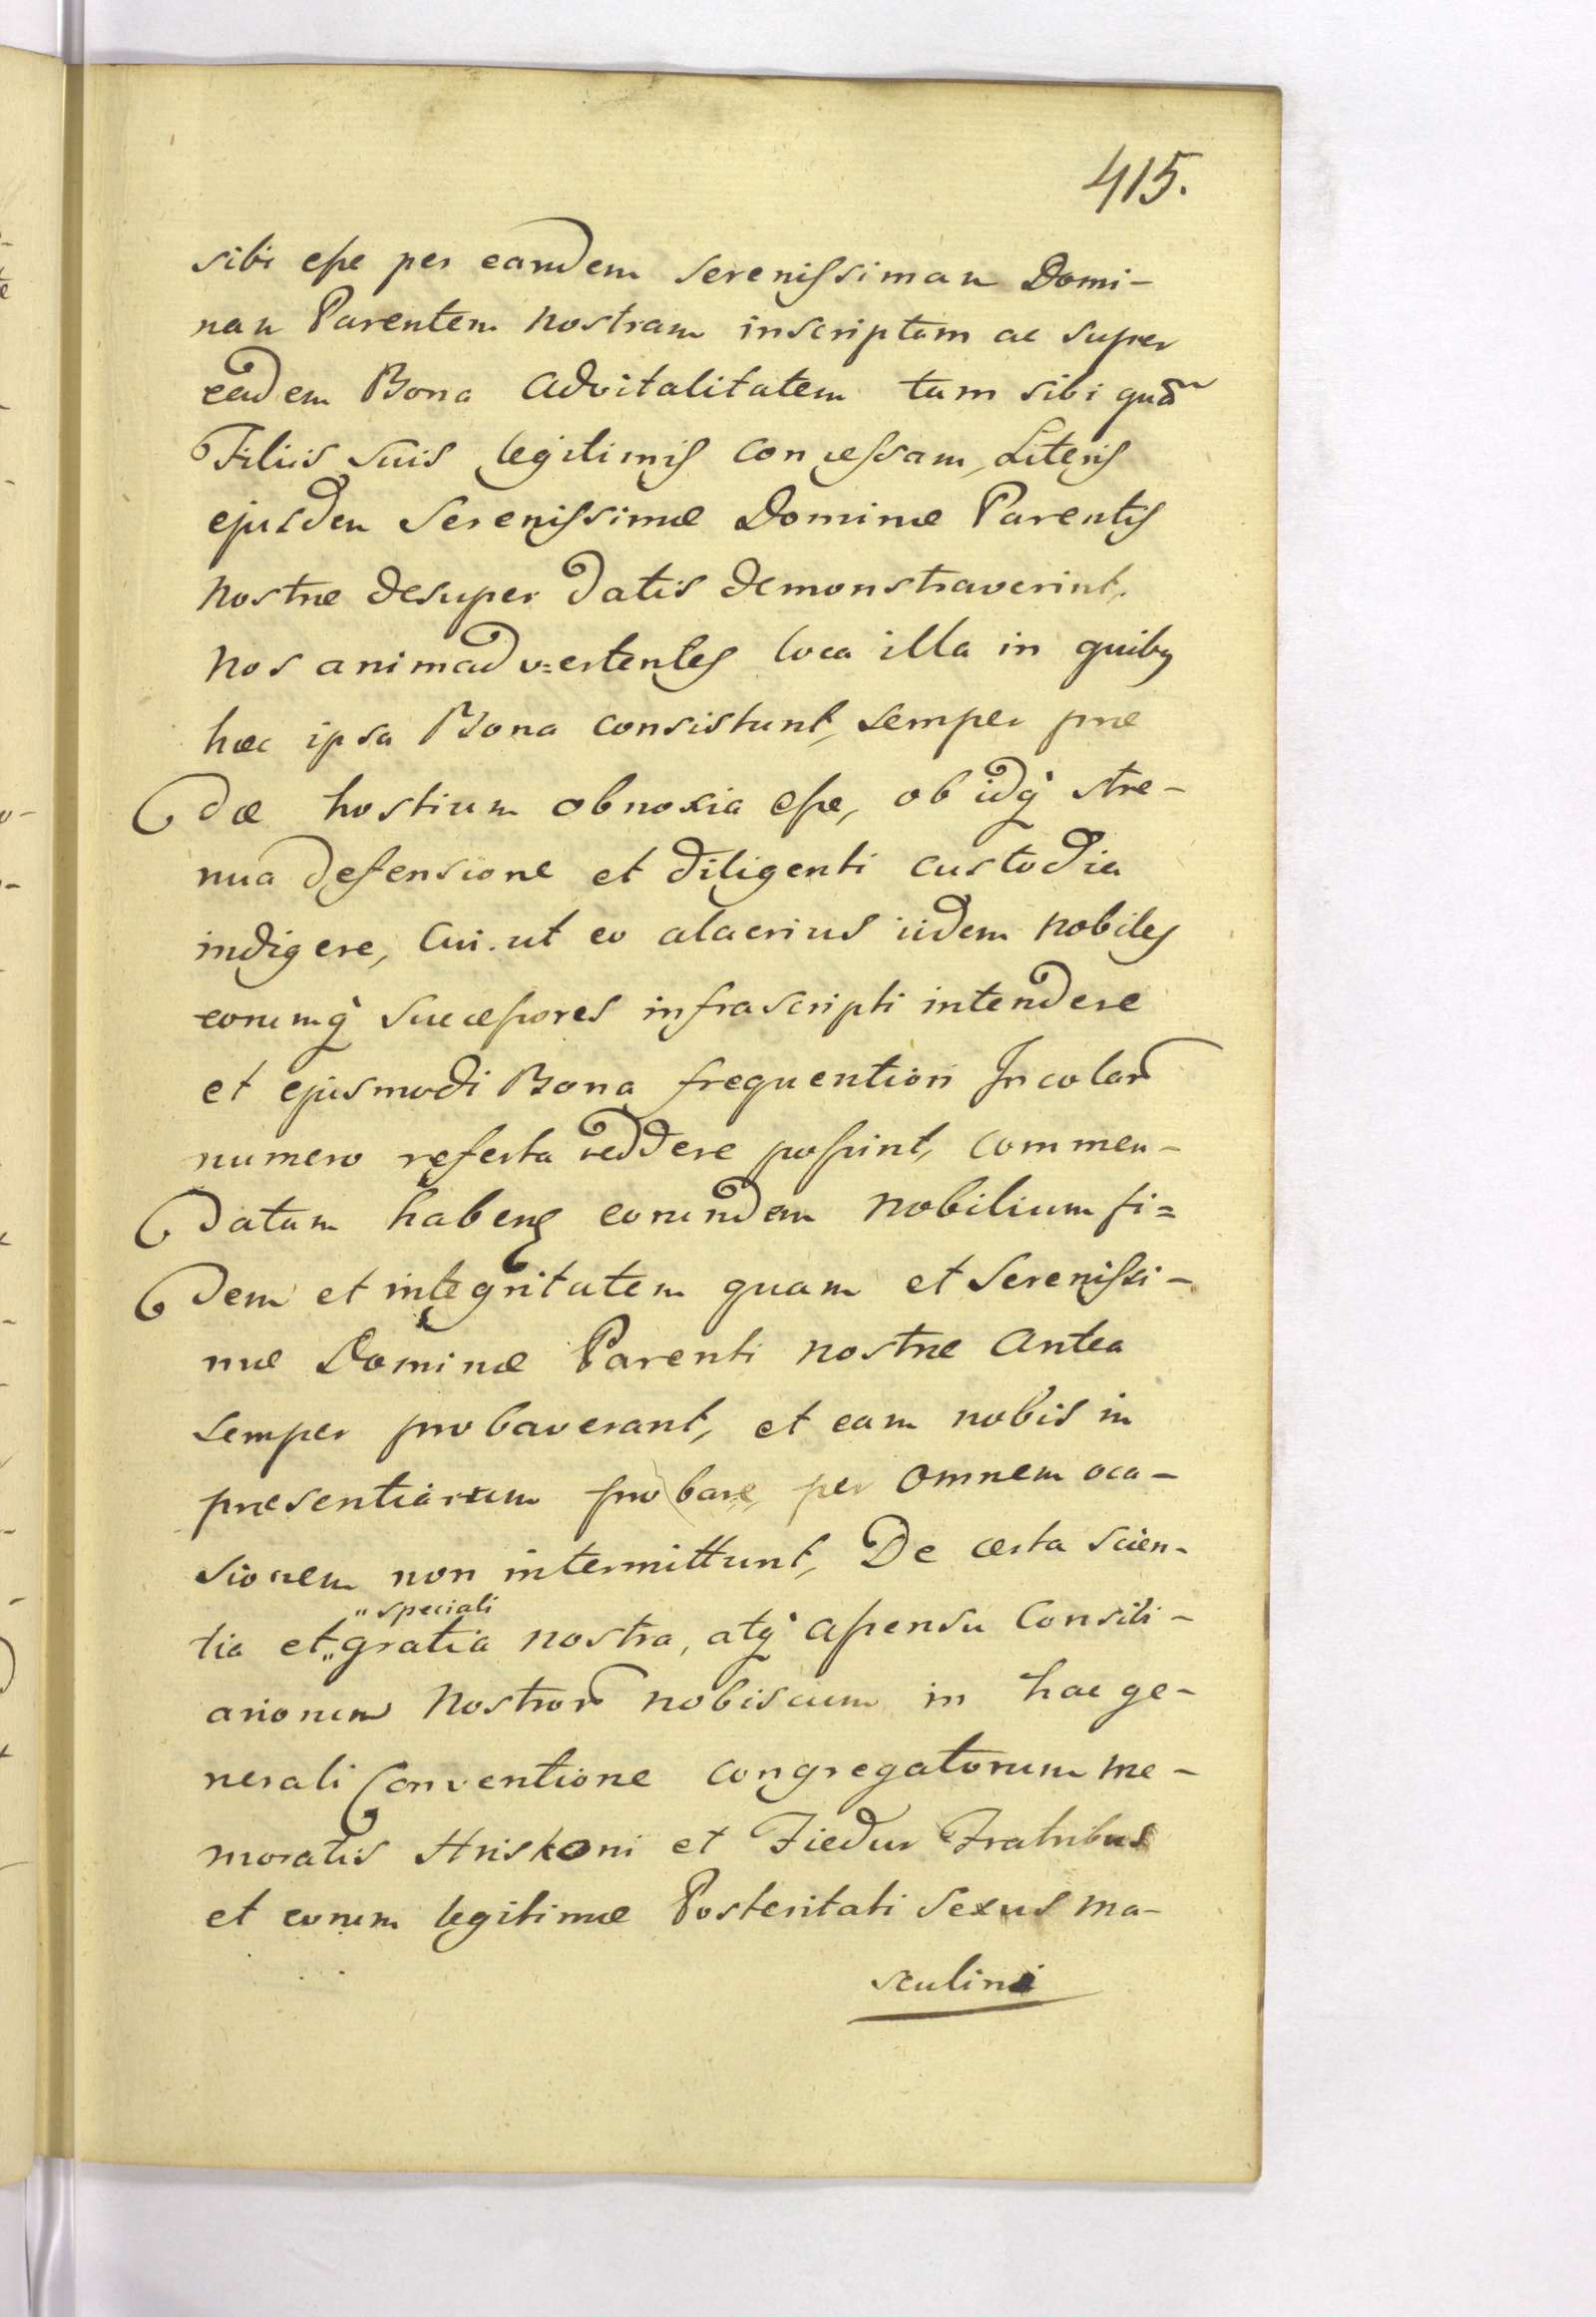 415.
sibi esse per eandem Serenissimam Domi-
nam Parentem nostram inscriptam ac super
eadem Bona Advitalitatem tam sibi quã
Filiis suis legitimis concessam, Literis
ejusdem Serenissimæ Dominæ Parentis
nostræ desuper datis demonstraverint.
nos animadv=ertentes loca illa in quiby
hæc ipsa Bona consistunt, semper præ
dæ hostium obnoxia esse, ob idq̀ stre-
nua defensione et diligenti custodia
indigere, Cui ut eo alacrius iidem nobiles
eorumq̀ successores infrascripti intendere
et ejusmodi Bona frequentiori Incolar̃
numero referta reddere possint, commen-
datam habens eorundem nobilium fi=
dem et integritatem quam et Serenissi-
mæ Dominæ Parenti nostræ Antea
semper probaverant, et eam nobis in
præsentiarum probare, per omnem oca-
sionem non intermittunt, De certa scien-
" speciali
tia et„ gratia nostra, atq̀ assensu Consili-
ariorum Nostror̃ nobiscum in hac ge-
nerali Conventione congregatorum me-
moratis Hriskoni et Fiedur Fratribus
et eorum legitimæ Posteritati Sexus ma-
sculini